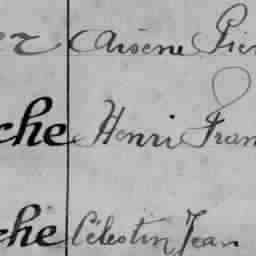 ez Arsène Pier
che Henri Fran
che Célestin Jean